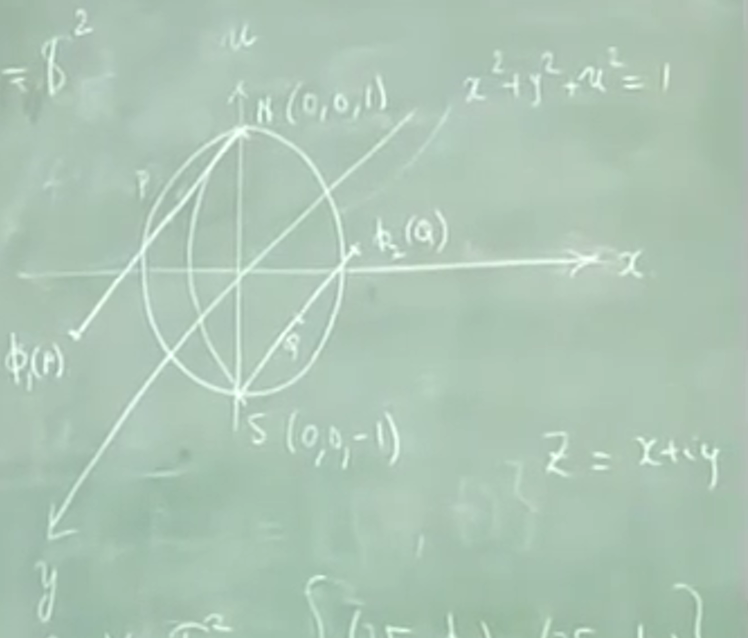 u
= 8²
N (0,0,1)
x²+y²+u²=1
P
ϕ₂(Q)
x
ϕ₁(P)
Q
S (0,0,-1)
Z = x+iy
y